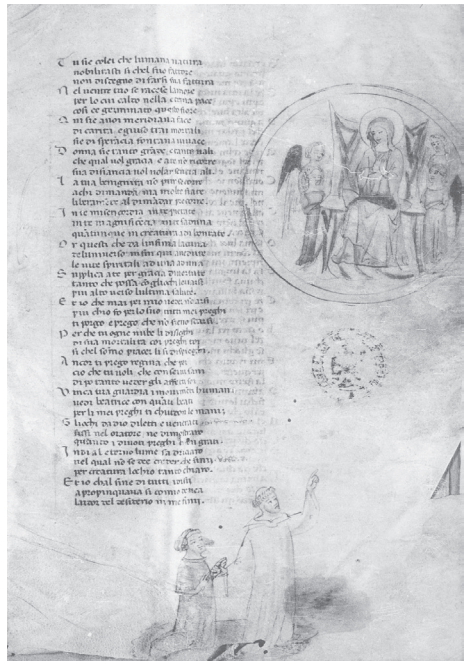 Tu sie colei che lumana natura
nobilitasti si chel suo fattore
non disdegno di farsi sua fattura
Nel ventre tuo se raccese lamore
per lo cui caldo nella eterna pace
cosi ce germinato questo fiore
Qui sie anoi meridiana face
di carita, e giuso trai mortali
sie di sperança fontana uiuace
Donna sie tanto grande e tanto uali
che qual uol gratia e ate nõ ricorre
sua disiança uol uolar sença ali.
La tua benignita nõ pur socorre
achi dimanda, ma molte fiate
liberamẽte al dimandar precorre.
In te misericordia in te pietate
in te magnificença in te saduna
quãtunque in creatura e di bontate.
Or questi che da linfima lacuna
de luniuerso infin qui a uedute
le uite spiritali ad una ad una
Supplica a te per gratia di uertute
tanto che possa cõ gliochi leuarsi
piu alto uerso lultima salute.
Et io che mai per mio ueder nõ arsi
piu chio fo per lo suo tutti mei preghi
ti porgo e prego che nõ sieno scarsi.
Per che tu ogne nube li disleghi
di sua mortalita coi preghi toi
si chel sõmo piacer li si dispieghi.
Ancor ti prego regina, che poi
cio che tu uoli, che conserui sani
di po tanto ueder gli affecti soi
Vinca tua guardia i mouimẽti humani
uedi beatrice con quãti beati
per li mei preghi ti chiudon le mani.
Gliochi da dio diletti e uenerati
fissi nel oratore, ne dimostraro
quanto i diuoti preghi le sun grati.
Indi al eterno lume sa driçaro
nel qual nõ se dee creder che sinui
per creatura lochio tanto chiaro.
Et io chal fine di tutti
apropinquaua si como deuea
lardor del desiderio in me finii.